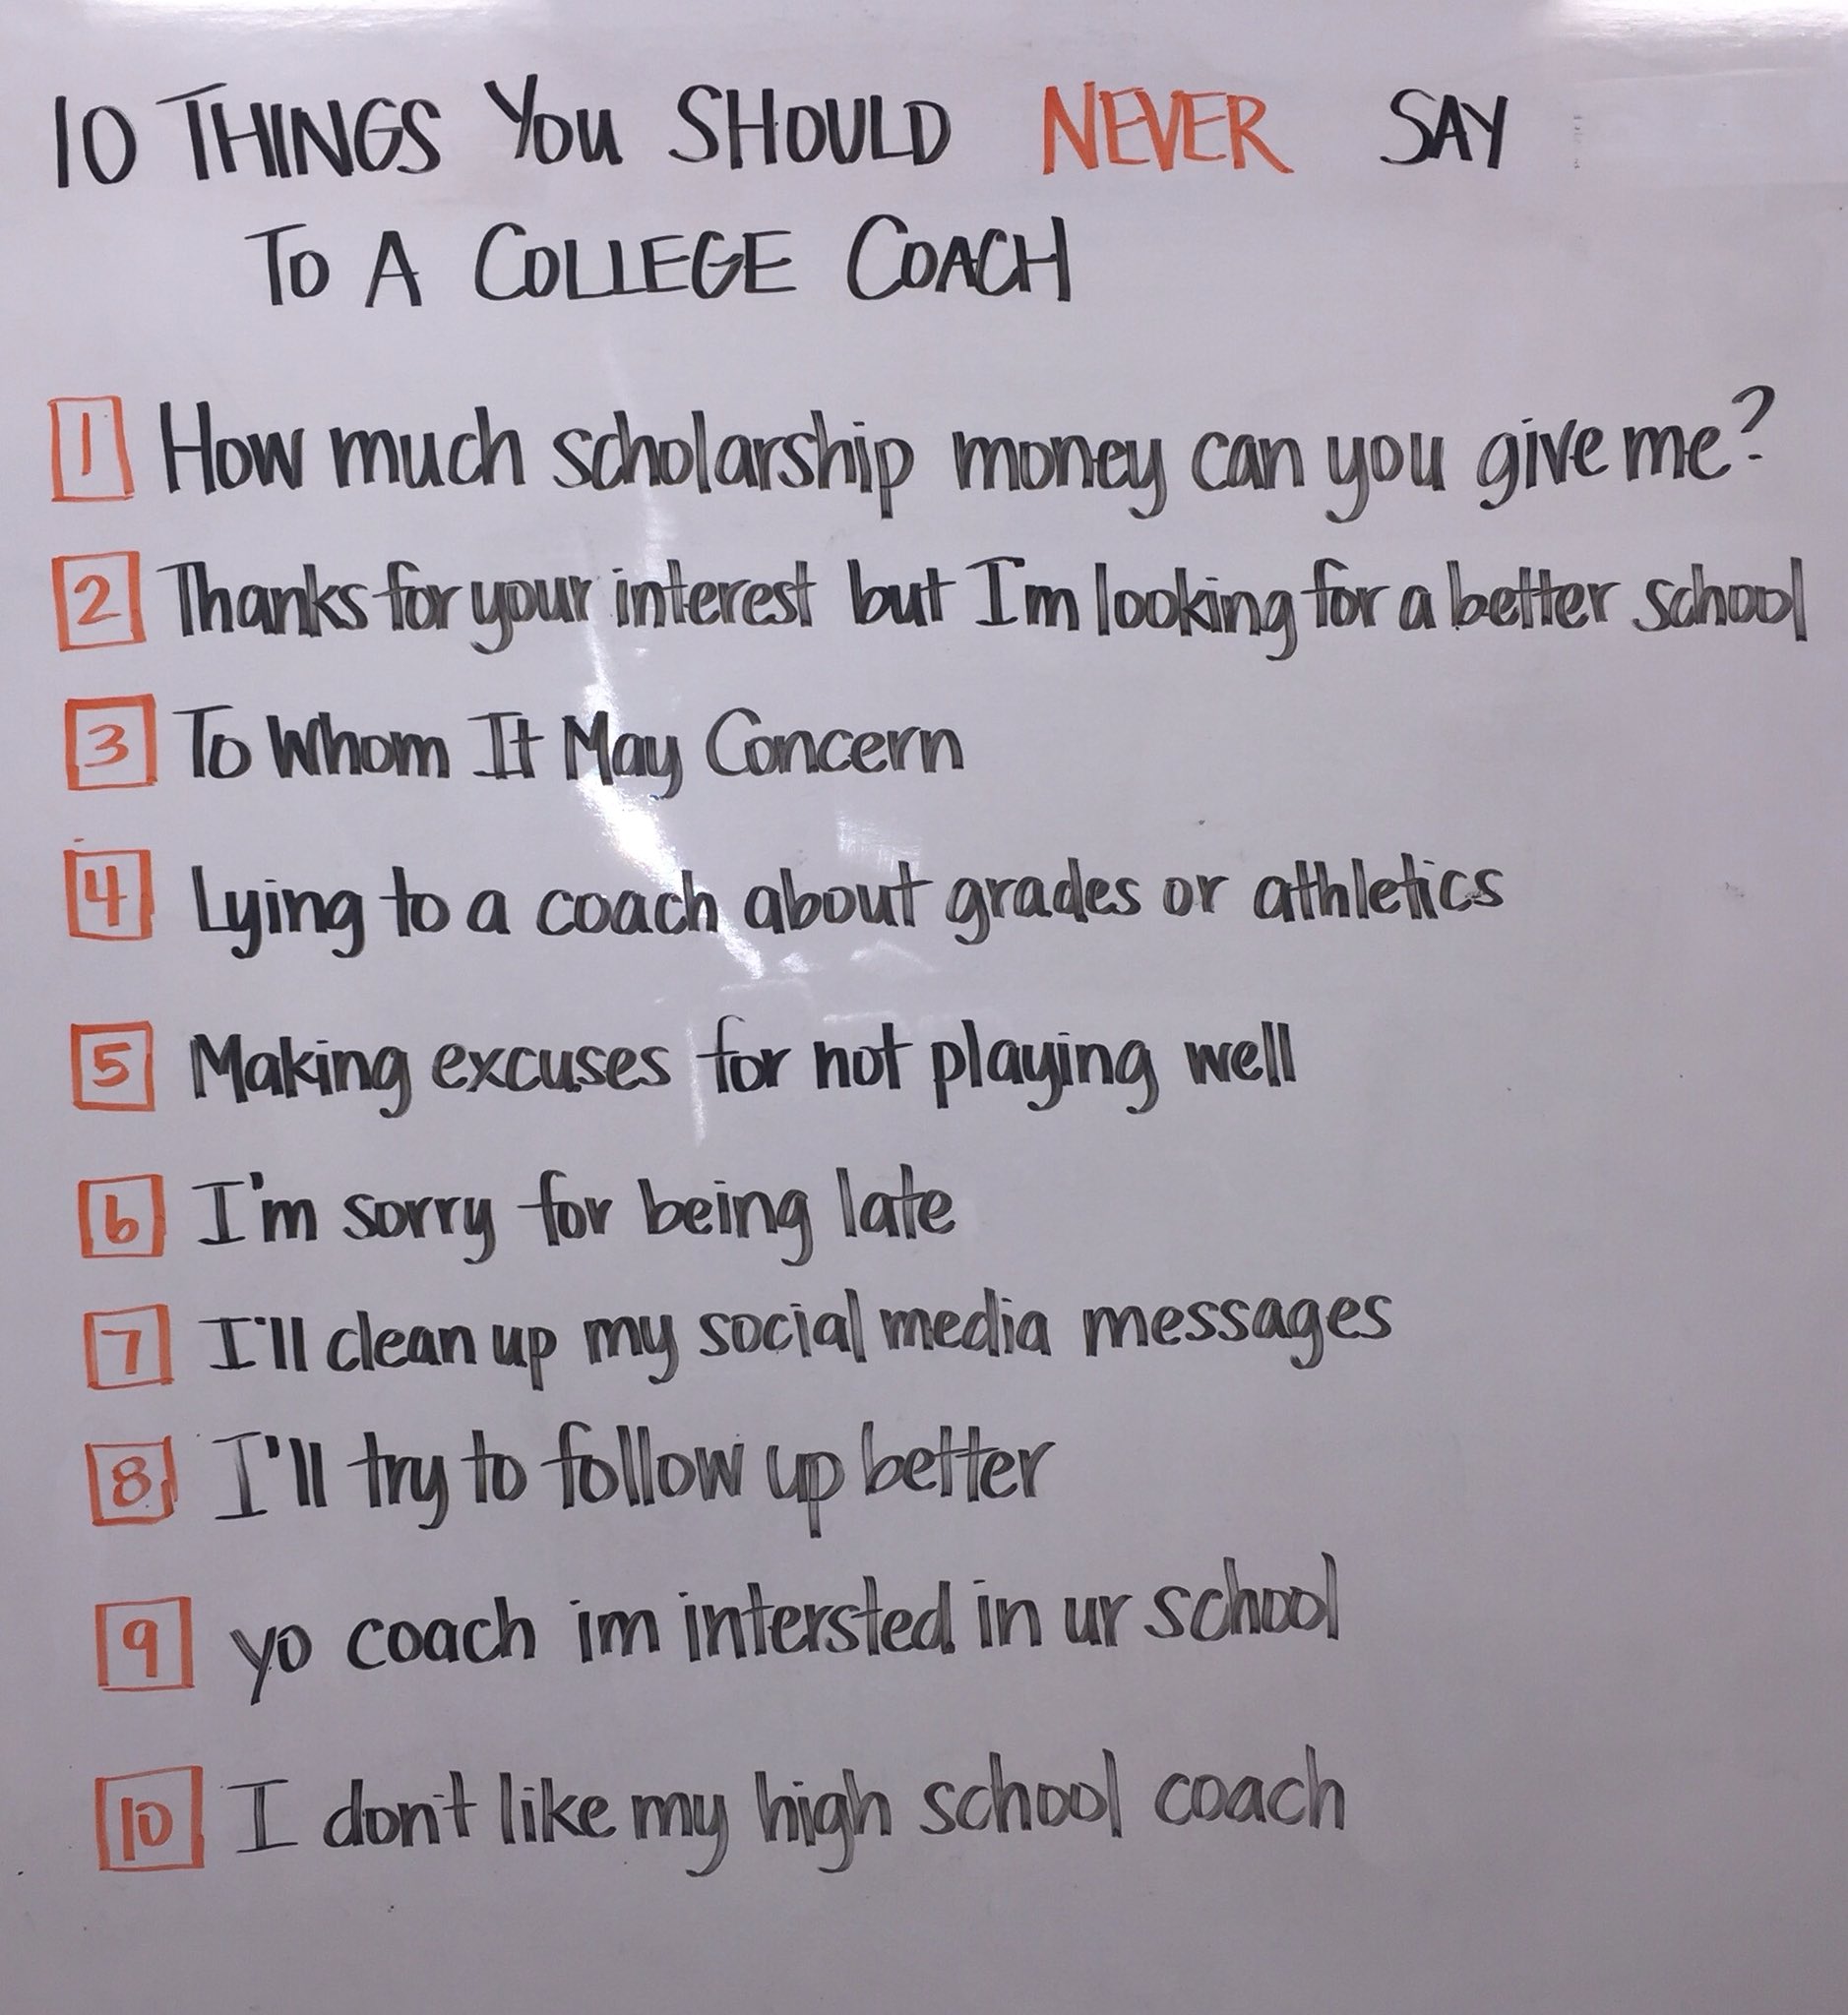 10 THINGS YOU SHOULD NEVER SAY
TO A COLLEGE COACH
1 How much scholarship money can you give me?
2 Thanks for your interest but I'm looking for a better school
3 To Whom It May Concern
4 Lying to a coach about grades or athletics
5 Making excuses for not playing well
6 I'm sorry for being late
7 I'll clean up my social media messages
8 I'll try to follow up better
9 yo coach im intersted in ur school
10 I don't like my high school coach